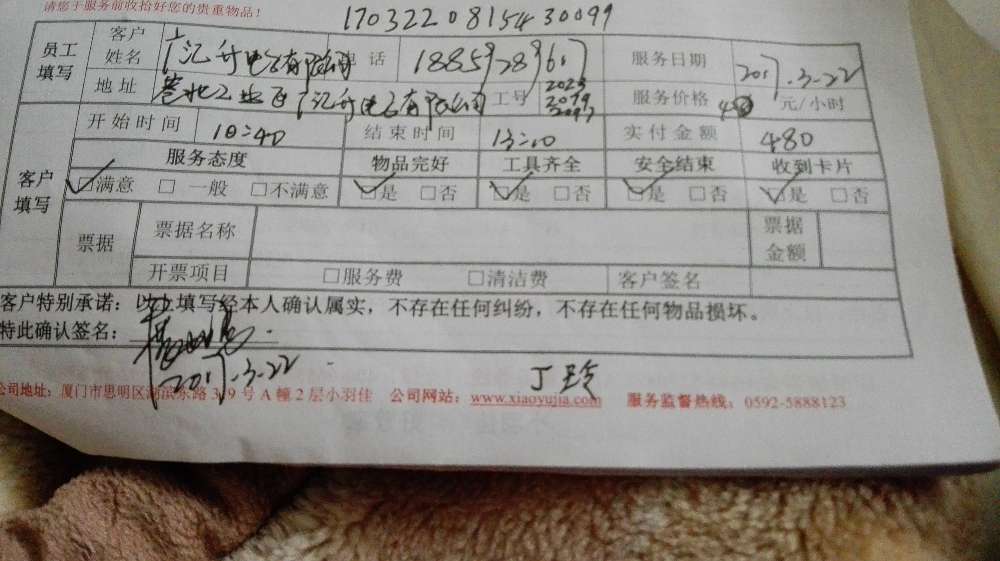 请您于服务前收拾好您的贵重物品！
1703220815430099
员工填写 客户姓名 广汇升电子有限公司 电话 服务日期 2017.3.22
地址 工业区广汇升电子有限公司 工号 2023 2079 服务价格 元/小时
开始时间 10:40 结束时间 13:10 实付金额 480
客户填写 服务态度 物品完好 工具齐全 安全结束 收到卡片
□满意 □一般 □不满意 □是 □否 □是 □否 □是 □否 □是 □否
票据 票据名称 票据金额
开票项目 □服务费 □清洁费 客户签名
客户特别承诺：以上填写经本人确认属实，不存在任何纠纷，不存在任何物品损坏。
特此确认签名：
2017.3.22
丁玲
公司地址：厦门市思明区湖滨东路319号A幢2层小羽佳 公司网站：www.xiaoyujia.com 服务监督热线：0592-5888123